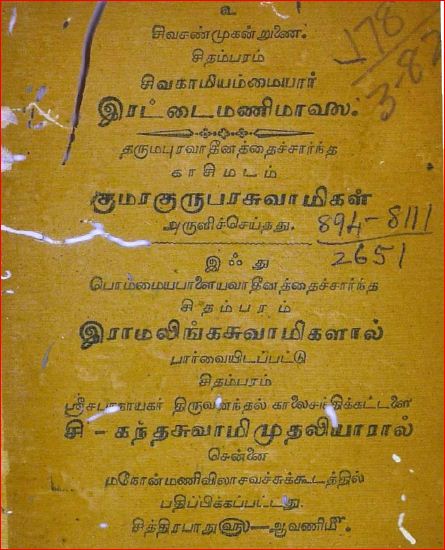 உ
சிவசண்முகன்றுணை.
சிதம்பரம்
சிவகாமியம்மையார்
இரட்டைமணிமாலை.
தருமபுரவாதீனத்தைச்சார்ந்த
காசிமடம்
குமரகுருபரசுவாமிகள்
அருளிச்செய்தது.
இஃது
பொம்மையபாளையவாதீனத்தைச்சார்ந்த
சிதம்பரம்
இராமலிங்கசுவாமிகளால்
பார்வையிடப்பட்டு
சிதம்பரம்
ஸ்ரீசபாநாயகர் திருவனந்தல் காலைசந்திக்கட்டளை
சி - கந்தசுவாமிமுதலியாரால்
சென்னை
மகோன்மணிவிலாசவச்சுக்கூடத்தில்
பதிப்பிக்கப்பட்டது.
சித்திரபாநு௵—ஆவணிமீ.
178
3-87
894-8111
2651